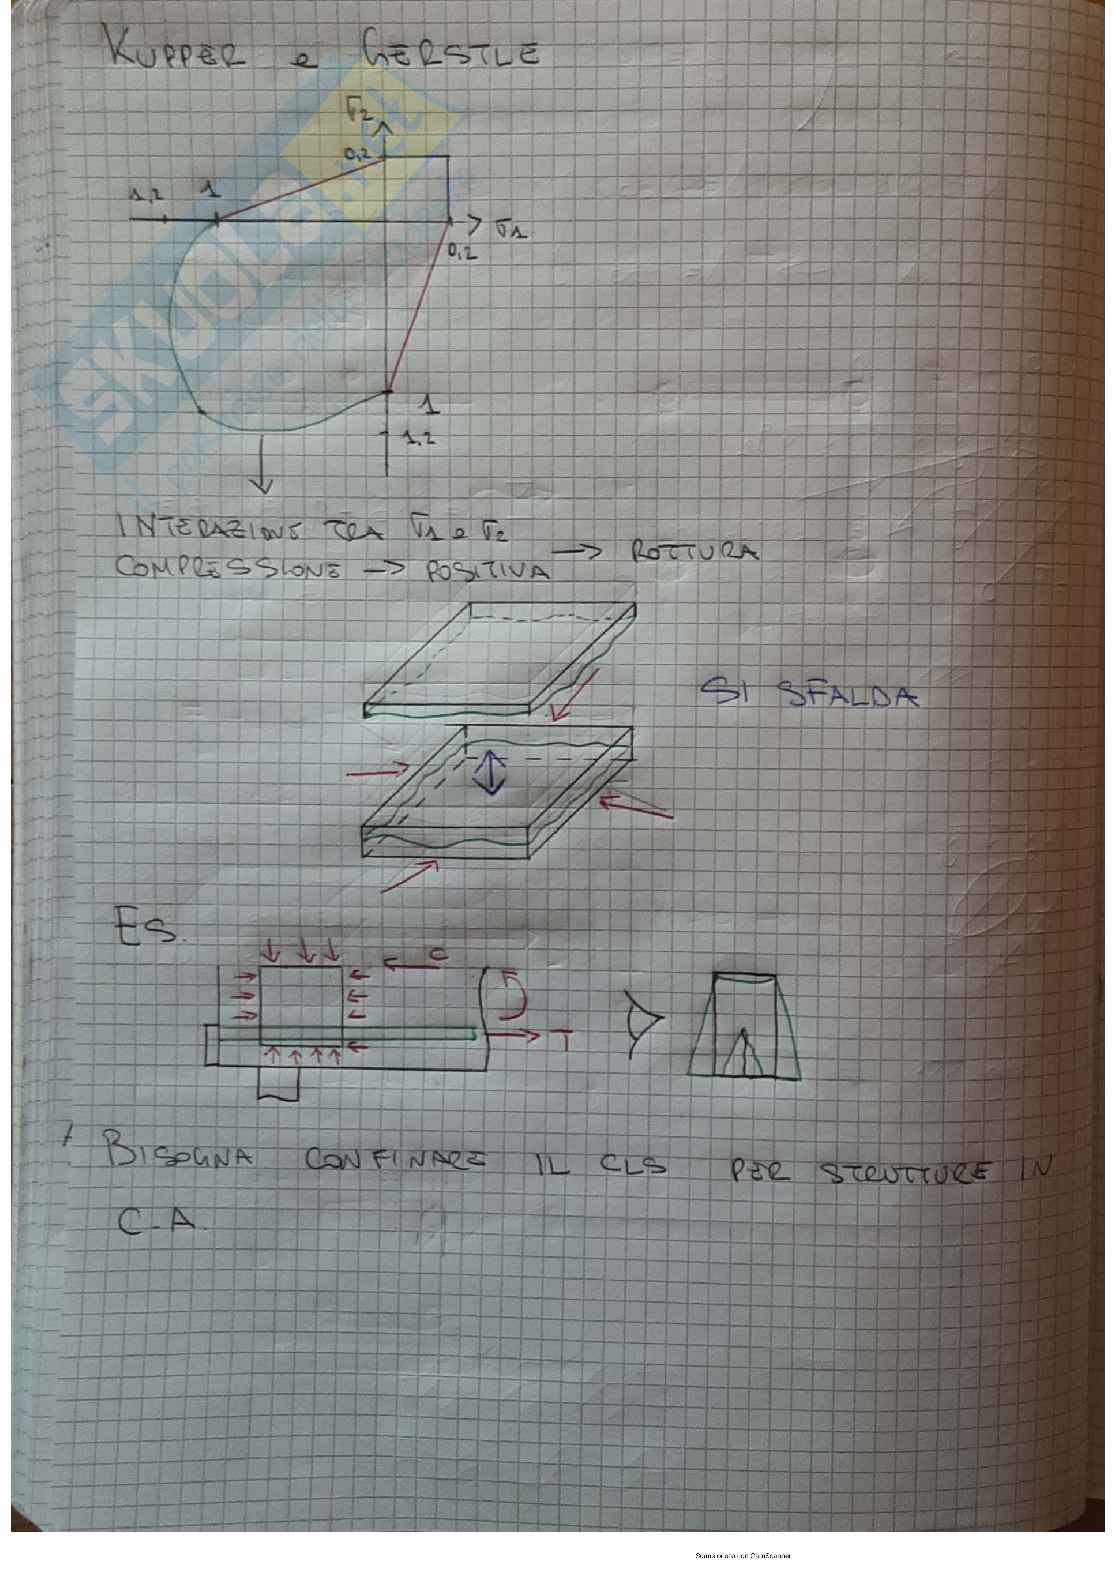 KUPPER e GERSTLE
σ2
0,2
1,2
1
σ1
0,2
1
1,2
INTERAZIONE TRA σ1 e σ2
COMPRESSIONE -> POSITIVA -> ROTTURA
SI SFALDA
ES.
C
T
BISOGNA CONFINARE IL CLS PER STRUTTURE IN
C.A.
SKUOLA.net
Scansionato con CamScanner